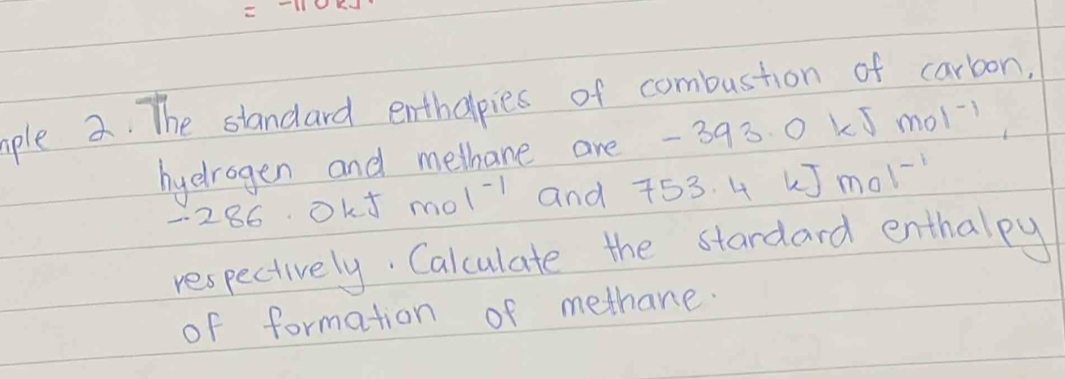 = -110 kJ
mple 2. The standard enthalpies of combustion of carbon,
hydrogen and methane are -393.0 kJ mol⁻¹,
-286.0kJ mol⁻¹ and 753.4 kJ mol⁻¹
respectively. Calculate the standard enthalpy
of formation of methane.